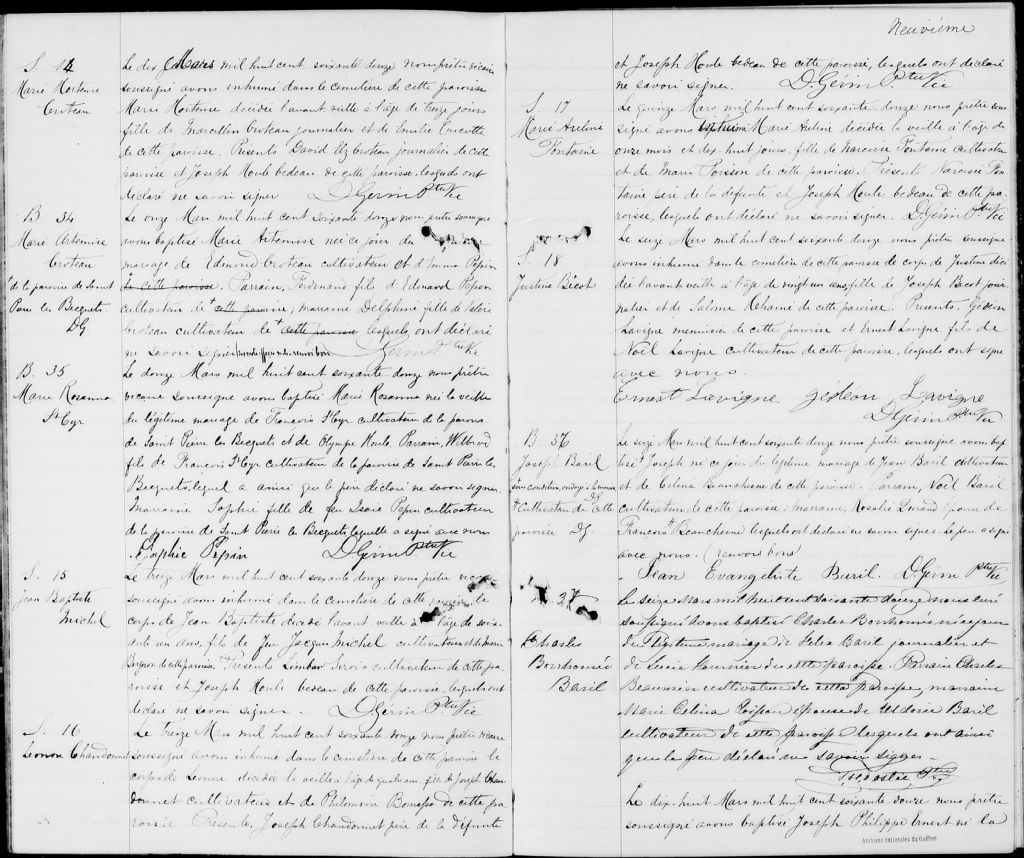 S. 14
Marie Hortense
Croteau
Le dix Mars mil huit cent soixante douze nous prêtre vicaire
soussigné avons inhumé dans le cimetière de cette paroisse
Marie Hortense décédée l'avant veille à l'âge de treize jours
fille de Marcellin Croteau journalier et de Emilie Turcotte
de cette paroisse. Présents David Croteau journalier de cette
paroisse et Joseph Houle bedeau de cette paroisse lesquels ont
déclaré ne savoir signer. D. Gérin Ptre Vic
B 34
Marie Artemise
Croteau
+ de la paroisse de Saint
Pierre les Becquets.
DG
Le onze Mars mil huit cent soixante douze nous prêtre soussigné
avons baptisé Marie Artemise née ce jour du
mariage de Edmond Croteau cultivateur et d'Emma Pepin
de cette paroisse. Parrain, Ferdinand fils d'Edouard Pepin
cultivateur de + cette paroisse, marraine Delphine fille de Valère
Croteau cultivateur de + cette paroisse lesquels ont déclaré
ne savoir signer renvois bons D. Gérin Ptre Vic
B. 35
Marie Rosanna
St Cyr
Le douze Mars mil huit cent soixante-douze nous prêtre
vicaire soussigné avons baptisé Marie Rosanna née la veille
du légitime mariage de François St Cyr cultivateur de la paroisse
de Saint Pierre les Becquets et de Olympe Houle. Parrain, Wilbrod
fils de François St Cyr cultivateur de la paroisse de Saint Pierre les
Becquets, lequel a ainsi que le père déclaré ne savoir signer.
Marraine Sophie fille de feu Isaïe Pepin cultivateur
de la paroisse de Saint Pierre les Becquets laquelle a signé avec nous
Sophie Pepin D. Gérin Ptre Vic
S. 15
Jean Baptiste
Michel
Le treize Mars mil huit cent soixante douze nous prêtre vicaire
soussigné avons inhumé dans le cimetière de cette paroisse le
corps de Jean Baptiste décédé l'avant veille à l'âge de soix
ante un ans, fils de feu Jacques Michel cultivateur et de Marie
de cette paroisse. Présents Sirois cultivateur de cette pa
roisse et Joseph Houle bedeau de cette paroisse lesquels ont
déclaré ne savoir signer. D. Gérin Ptre Vic
S. 16
Léonore Chandonnet
Le treize Mars mil huit cent soixante douze nous prêtre vicaire
soussigné avons inhumé dans le cimetière de cette paroisse le
corps de Léonore décédée la veille à l'âge de quatre ans fille de Joseph Chan
donnet cultivateur et de Philomène de cette pa
roisse. Présents, Joseph Chandonnet père de la défunte
Neuvième
et Joseph Houle bedeau de cette paroisse, lesquels ont déclaré
ne savoir signer. D. Gérin Ptre Vic
S. 17
Marie Arline
Fontaine
Le quinze Mars mil huit cent soixante douze nous prêtre sous
signé avons inhumé Marie Arline décédée la veille à l'âge de
onze mois et dix huit jours, fille de Narcisse Fontaine cultivateur
et de Marie Poisson de cette paroisse. Présents Narcisse Fon
taine père de la défunte et Joseph Houle bedeau de cette pa
roisse, lesquels ont déclaré ne savoir signer. D. Gérin Ptre Vic
S. 18
Justine Bécot
Le seize Mars mil huit cent soixante douze nous prêtre soussigné
avons inhumé dans le cimetière de cette paroisse le corps de Justine décé
dée l'avant veille à l'âge de vingt un ans, fille de Joseph Becot jour
nalier et de Salomé de cette paroisse. Présents, Gédéon
Lavigne menuisier de cette paroisse et Ernest Lavigne fils de
Noël Lavigne cultivateur de cette paroisse, lesquels ont signé
avec nous.
Ernest Lavigne gédéon Lavigne
D. Gérin Ptre Vic
B. 36
Joseph Baril
sous condition, ondoyé à la maison
+ Cultivateur de cette DG
paroisse DG.
Le seize Mars mil huit cent soixante douze nous prêtre soussigné avons bap
tisé + Joseph né ce jour du légitime mariage de Jean Baril cultivateur
et de Celina Beauchesne de cette paroisse. Parrain, Noël Baril
cultivateur de cette paroisse, Marraine, Rosalie Durand épouse de
François + Beauchesne lesquels ont déclaré ne savoir signer. Le père a signé
avec nous. (renvois bons)
Jean Evangeliste Baril. D. Gérin Ptre Vic
B 37
Charles
Bonhomme
Baril
Le seize Mars mil huit cent soixante douze nous curé
soussigné avons baptisé Charles Bonhomme né ce jour
du légitime mariage de Felix Baril journalier et
de Lucie de cette paroisse. Parrain Charles
Beaumier cultivateur de cette paroisse, marraine
Marie Celina épouse de Baril
cultivateur de cette paroisse lesquels ont ainsi
que le père déclaré ne savoir signer.
Ptre
Le dix huit Mars mil huit cent soixante douze nous prêtre
soussigné avons baptisé Joseph Philippe Ernest né la
Archives nationales du Québec